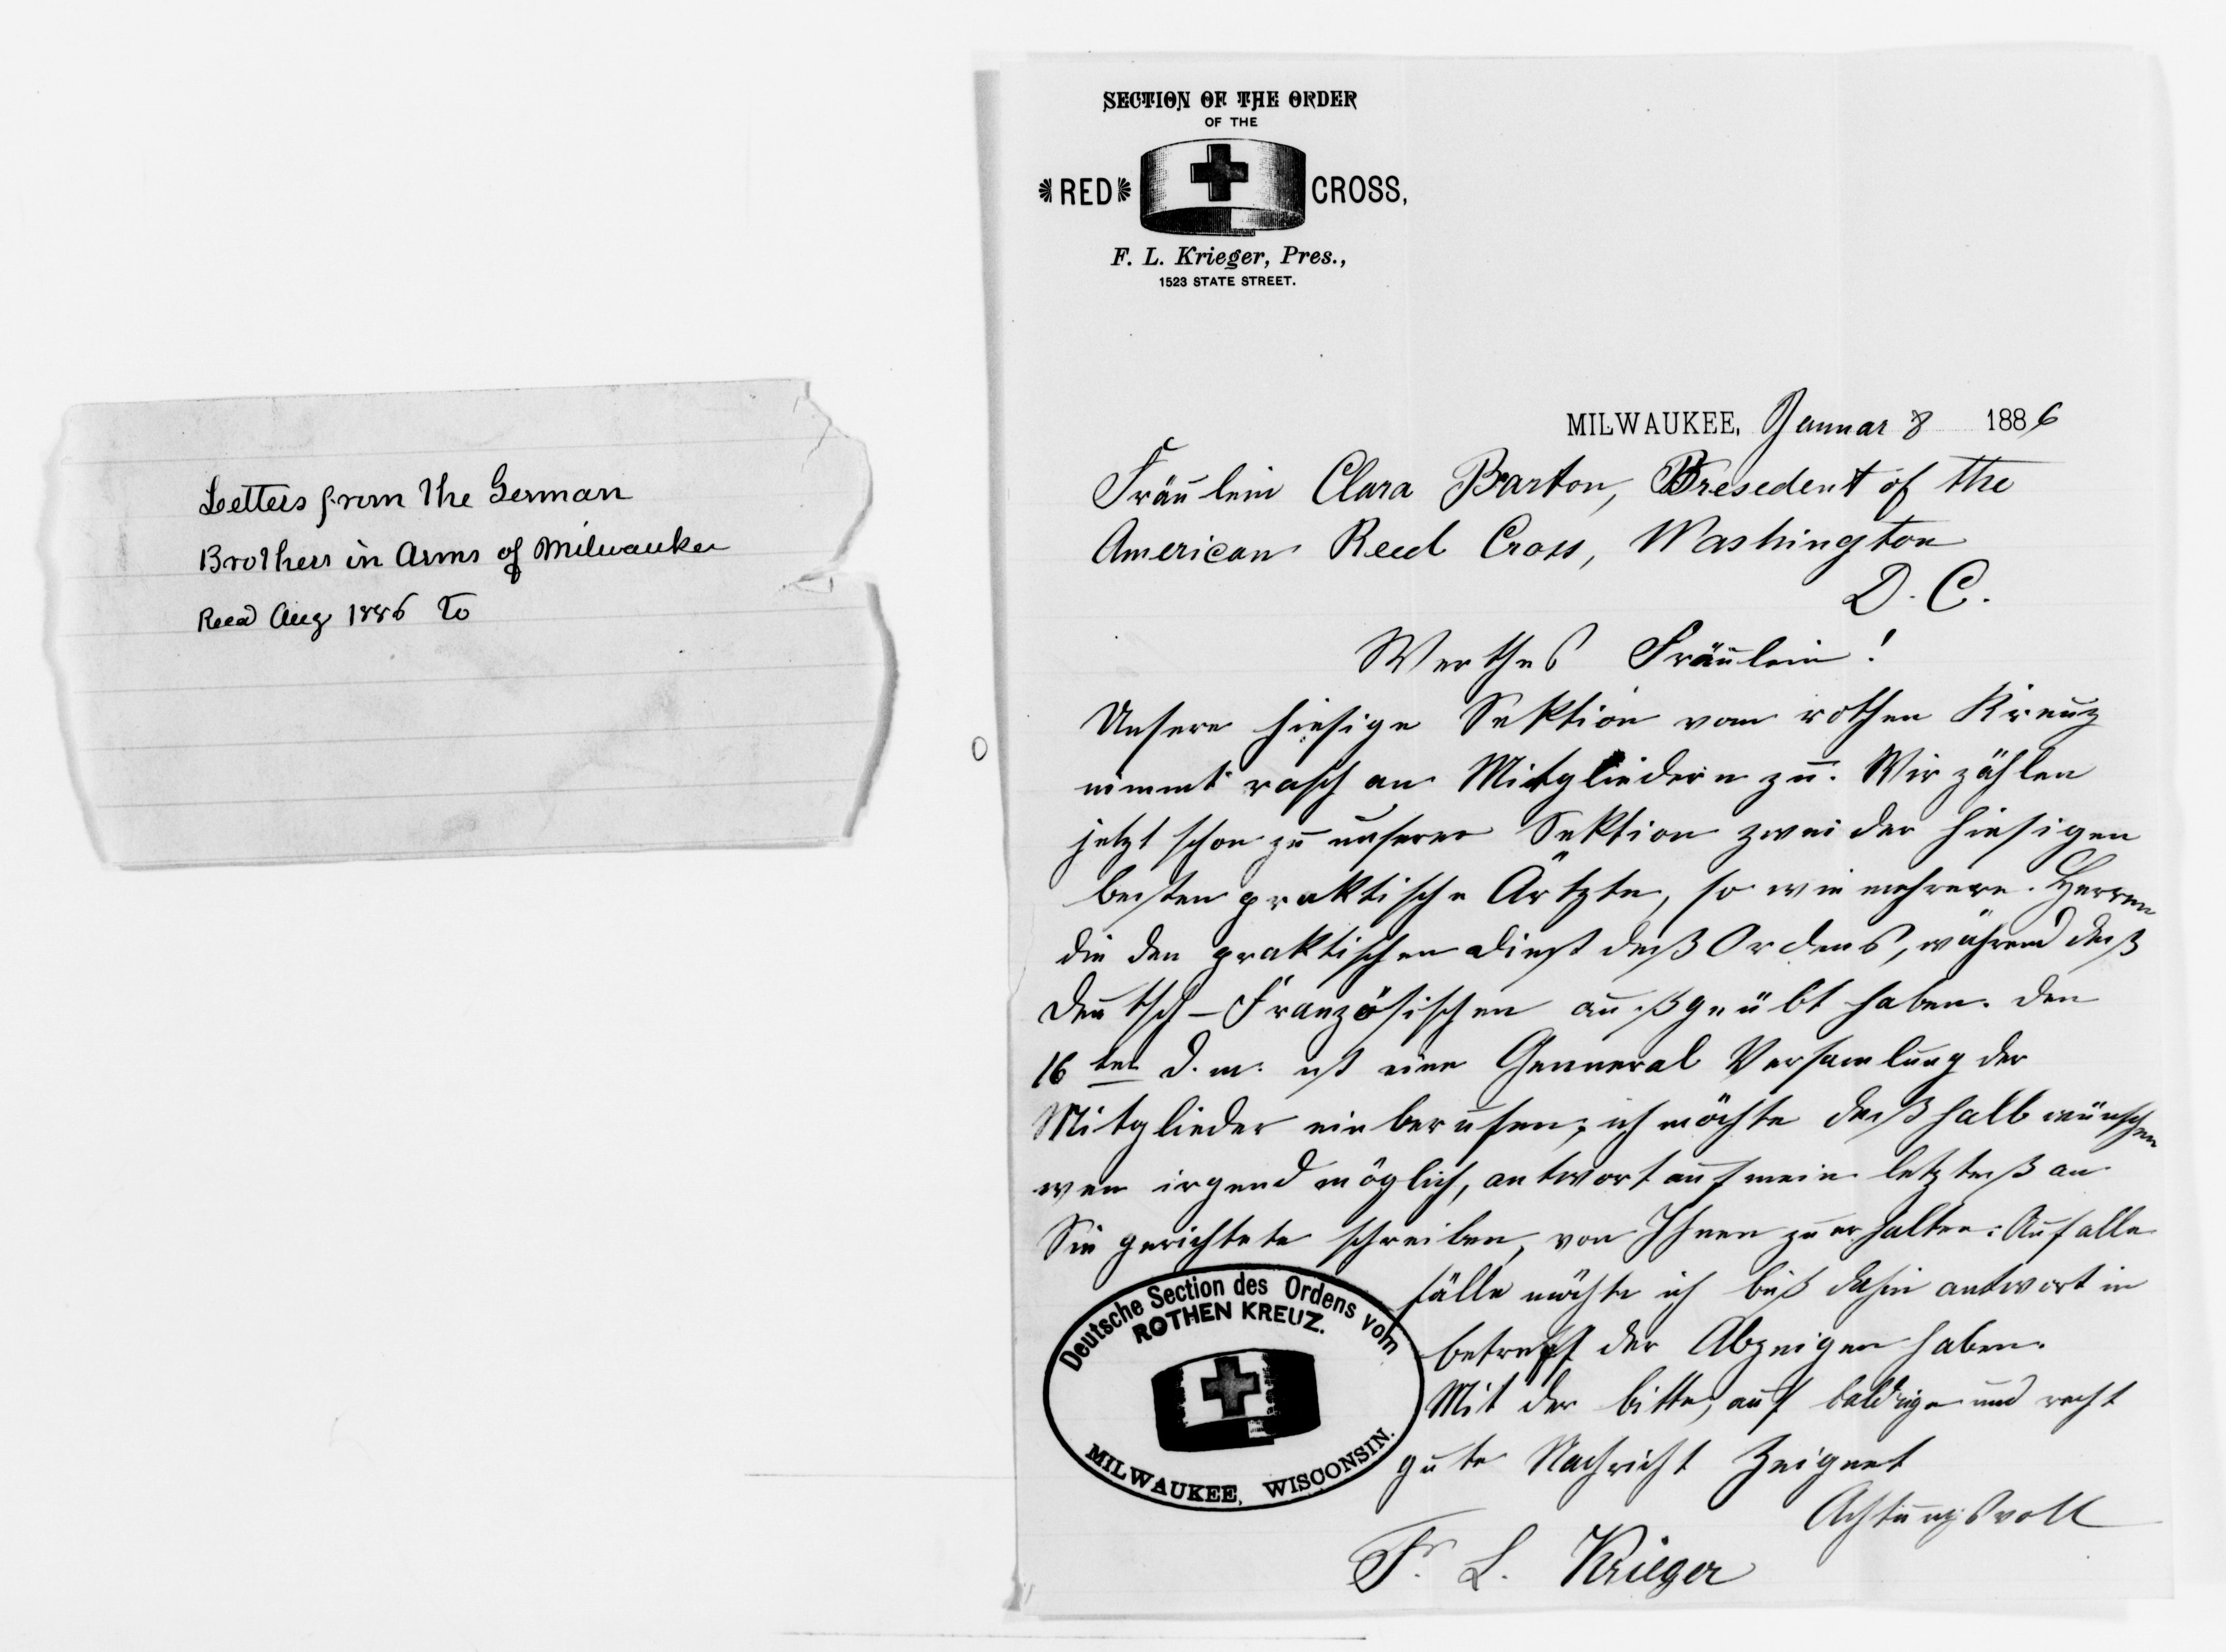 Letters from the German
Brothers in Arms of Milwaukee
Recd Aug 1886 to
SECTION OF THE ORDER
OF THE
RED CROSS,
F. L. Krieger, Pres.,
1523 STATE STREET.
MILWAUKEE, Januar 8 1886
Fräulein Clara Barton, Presedent of the
American Reed Cross, Washington
D. C.
Werthes Fräulein!
Unsere hiesige Sektion vom rothen Kreuz
nimmt rasch an Mitgliedern zu. Wir zählen
jetzt schon zu unserer Sektion zwei der hiesigen
besten praktische Ärtzte, so wie mehrere Herren
die den praktischen dienst deß Ordens, während deß
deutsch-Französischen außgeübt haben. den
16ten d. m. ist eine Genneral Versamlung der
Mitglieder einberufen; ich möchte deßhalb wünschen
wen irgend möglich, antwort auf mein letzteß an
Sie gerichtete schreiben, von Ihnen zu erhalten: Auf alle
fälle möchte ich biß dahin antwort in
betreff der Abzeigen haben.
Mit der bitte, auf baldige und recht
gute Nachricht Zeignet
Achtungsvoll
F. L. Krieger
Deutsche Section des Ordens vom
ROTHEN KREUZ.
MILWAUKEE, WISCONSIN.